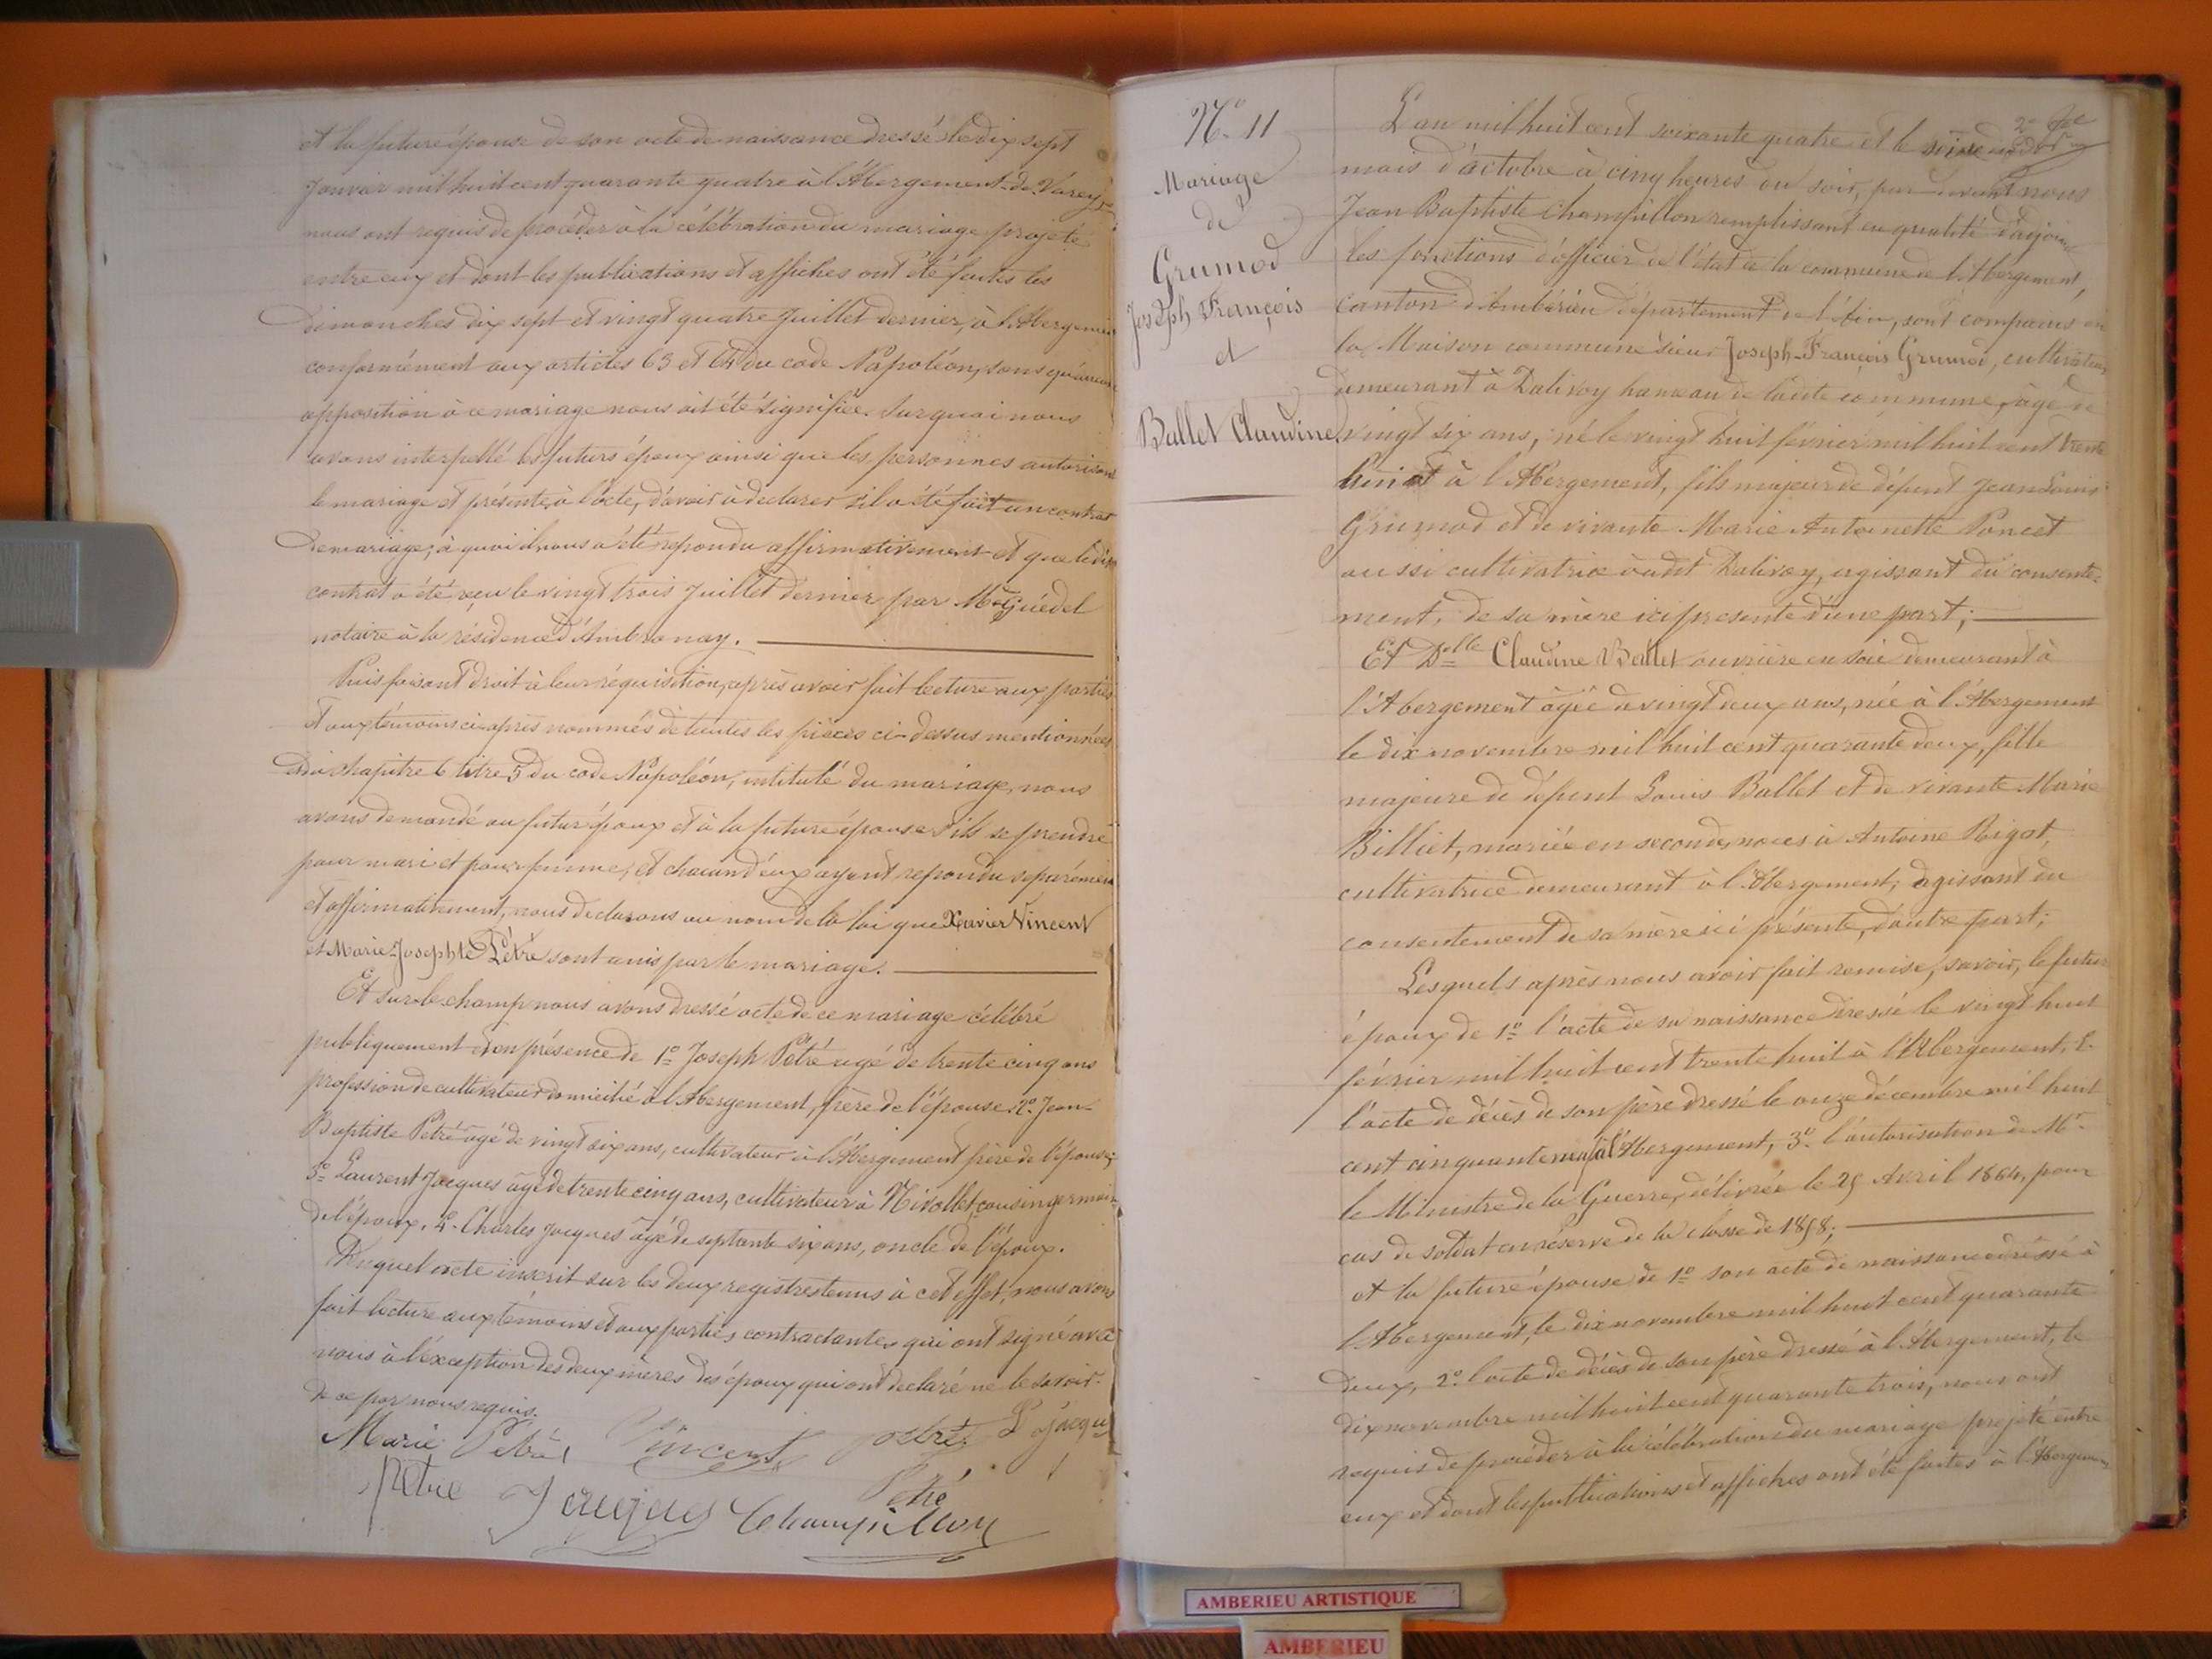 et la future épouse de son acte de naissance dressé le dix sept
Janvier mil huit cent quarante quatre à l'Abergement-de-Varey,
nous ont requis de procéder à la célébration du mariage projeté
entre eux et dont les publications et affiches ont été faites les
Dimanches dix sept et vingt quatre Juillet dernier, à l'Abergement
conformément aux articles 63 et 64 du code Napoléon, sans qu'aucune
opposition à ce mariage nous ait été signifiée. Sur quoi nous
avons interpellé les futurs époux ainsi que les personnes autorisant
le mariage et présente à l'acte, d'avoir à declarer s'il a été fait un contrat
de mariage; à quoi il nous a été repondu affirmativement et que ledit
contrat a été reçu le vingt trois Juillet dernier par Me Guédel
notaire à la résidence d'Ambronay.
Puis faisant droit à leur réquisition, après avoir fait lecture aux parties
et aux témoins ci-après nommés de toutes les pièces ci-dessus mentionnées
et du chapitre 6 titre 5 du code Napoléon, intitulé du mariage, nous
avons demandé au futur époux et à la future épouse s'ils se prendre
pour mari et pour femme, et chacun d'eux ayant repondu séparément
et affirmativement, nous declarons au nom de la loi que Xavier Vincent
et Marie-Josephte Pétré sont unis par le mariage.
Et sur-le-champ nous avons dressé acte de ce mariage célébré
publiquement et en présence de 1o Joseph Pétré agé de trente cinq ans
profession de cultivateur domicilié à l'Abergement, frère de l'épouse. 2o Jean-
Baptiste Petré agé de vingt six ans, cultivateur à l'Abergement frère de l'épouse;
3o Laurent Jacques âgé de trente cinq ans, cultivateur à Nivollet cousin germain
de l'époux. 4o Charles Jacques âgé de septante six ans, oncle de l'époux.
Duquel acte inscrit sur les deux registres tenus à cet effet, nous avons
fait lecture aux témoins et aux parties contractantes qui ont signé avec
nous à l'exception des deux mères des époux qui ont declaré ne le savoir
de ce par nous requis.
Marie Pétré Vincent petré L Jacques
petre Jacques Champillon Petré
No 11
Mariage
de
Grumod
Joseph François
et
Ballet Claudine
L'an mil huit cent soixante quatre et le seize du
mois d'octobre à cinq heures du soir, par devant nous
Jean Baptiste Champillon remplissant en qualité d'adjoint
les fonctions d'officier de l'état de la commune de l'Abergement,
canton d'Ambérieu département de l'Ain, sont comparus en
la Maison commune sieur Joseph-François Grumod, cultivateur
demeurant à Dalivoy hameau de ladite commune, âgé de
vingt six ans, né le vingt huit février mil huit cent trente
huit à l'Abergement, fils majeur de défunt Jean Louis
Grumod et de vivante Marie Antoinette Poncet
aussi cultivatrice audit Dalivoy, agissant du consente-
ment, de sa mère ici presente d'une part;
Et Delle Claudine Ballet ouvrière en soie demeurant à
l'Abergement âgée de vingt deux ans, née à l'Abergement
le dix novembre mil huit cent quarante deux, fille
majeure de défunt Louis Ballet et de vivante Marie
Billiet, mariée en seconde noces à Antoine Rigot,
cultivatrice demeurant à l'Abergement, agissant du
consentement de sa mère ici présente, d'autre part;
Lesquels après nous avoir fait remise, savoir, le futur
époux de 1o l'acte de sa naissance dressé le vingt huit
février mil huit cent trente huit à l'Abergement, 2o
l'acte de décès de son père dressé le onze décembre mil huit
cent cinquante neuf à l'Abergement, 3o l'autorisation de Mr
le Ministre de la Guerre, délivrée le 25 Avril 1864, pour
cas de soldat en réserve de la classe de 1858;
et la future épouse de 1o son acte de naissance dressé à
l'Abergement, le dix novembre mil huit cent quarante
deux, 2o l'acte de décès de son père dressé à l'Abergement, le
dix novembre mil huit cent quarante trois, nous ont
requis de procéder à la célébration du mariage projeté entre
eux et dont les publications et affiches ont été faites à l'Abergement
AMBERIEU ARTISTIQUE
AMBERIEU